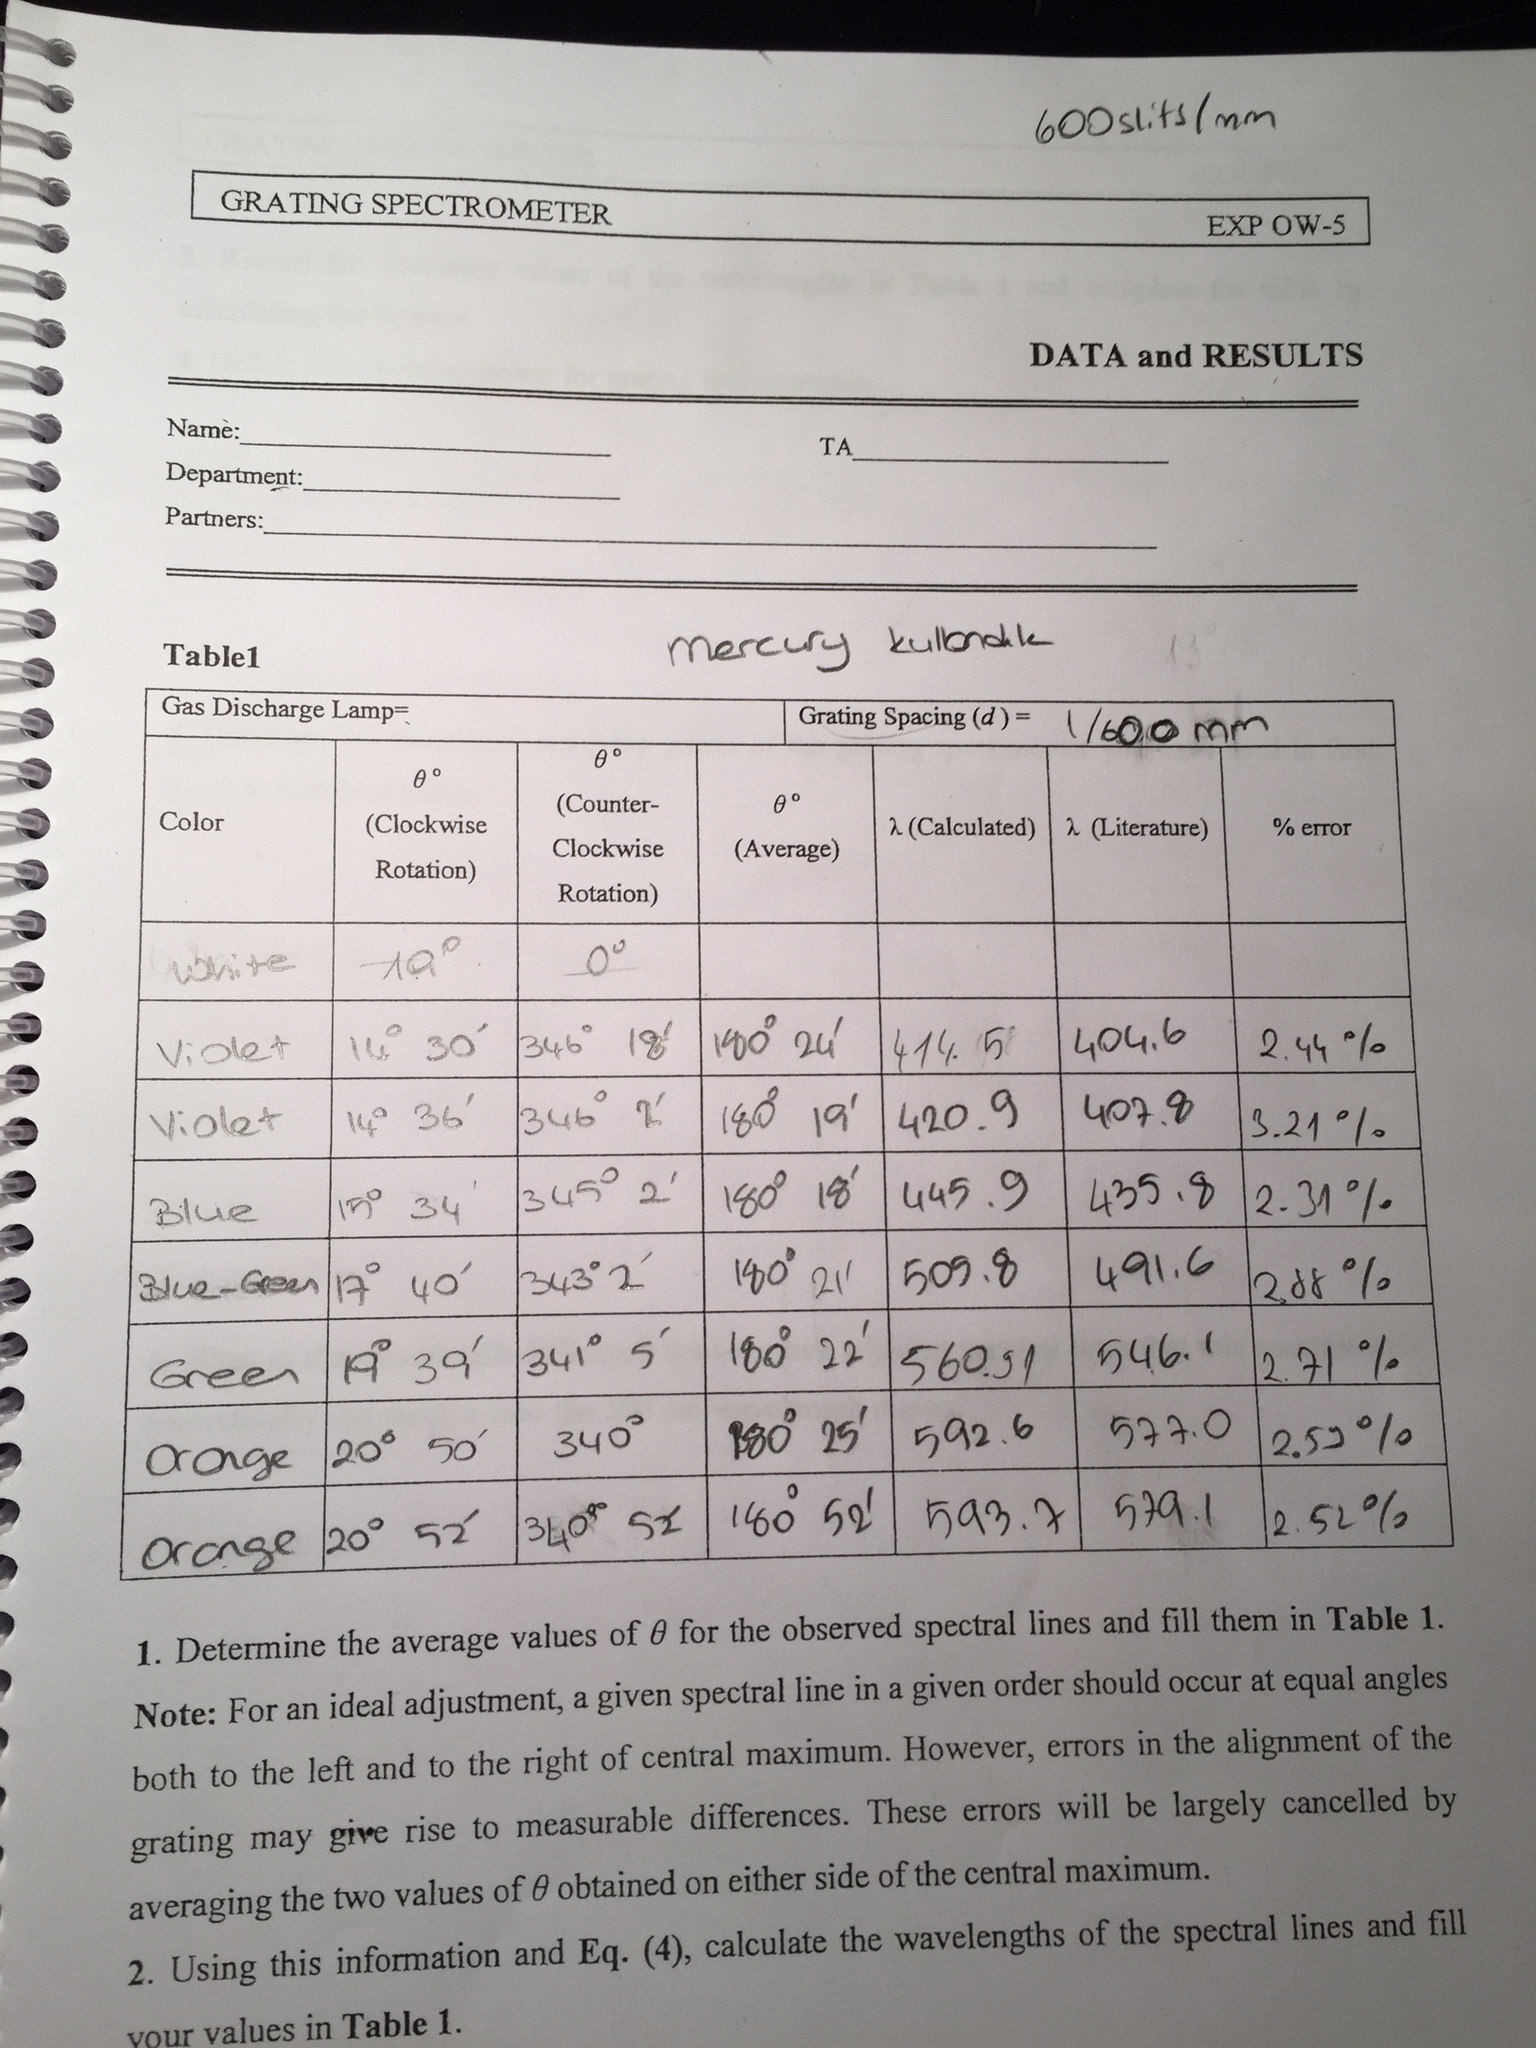 600 slits/mm
GRATING SPECTROMETER EXP OW-5
DATA and RESULTS
Name: TA
Department:
Partners:
Table1 mercury kullandık
Gas Discharge Lamp= Grating Spacing (d) = 1/600 mm
Color θ° (Clockwise Rotation) θ° (Counter-Clockwise Rotation) θ° (Average) λ (Calculated) λ (Literature) % error
White 19° 0°
Violet 14° 30′ 346° 18′ 180° 24′ 414.5 404.6 2.44 %
Violet 14° 36′ 346° 2′ 180° 19′ 420.9 407.8 3.21 %
Blue 15° 34′ 345° 2′ 180° 18′ 445.9 435.8 2.31 %
Blue-Green 17° 40′ 343° 2′ 180° 21′ 509.8 491.6 2.88 %
Green 19° 39′ 341° 5′ 180° 22′ 560.91 546.1 2.71 %
Orange 20° 50′ 340° 180° 25′ 592.6 577.0 2.59 %
Orange 20° 52′ 340° 52′ 180° 52′ 593.7 579.1 2.52 %
1. Determine the average values of θ for the observed spectral lines and fill them in Table 1.
Note: For an ideal adjustment, a given spectral line in a given order should occur at equal angles
both to the left and to the right of central maximum. However, errors in the alignment of the
grating may give rise to measurable differences. These errors will be largely cancelled by
averaging the two values of θ obtained on either side of the central maximum.
2. Using this information and Eq. (4), calculate the wavelengths of the spectral lines and fill
your values in Table 1.